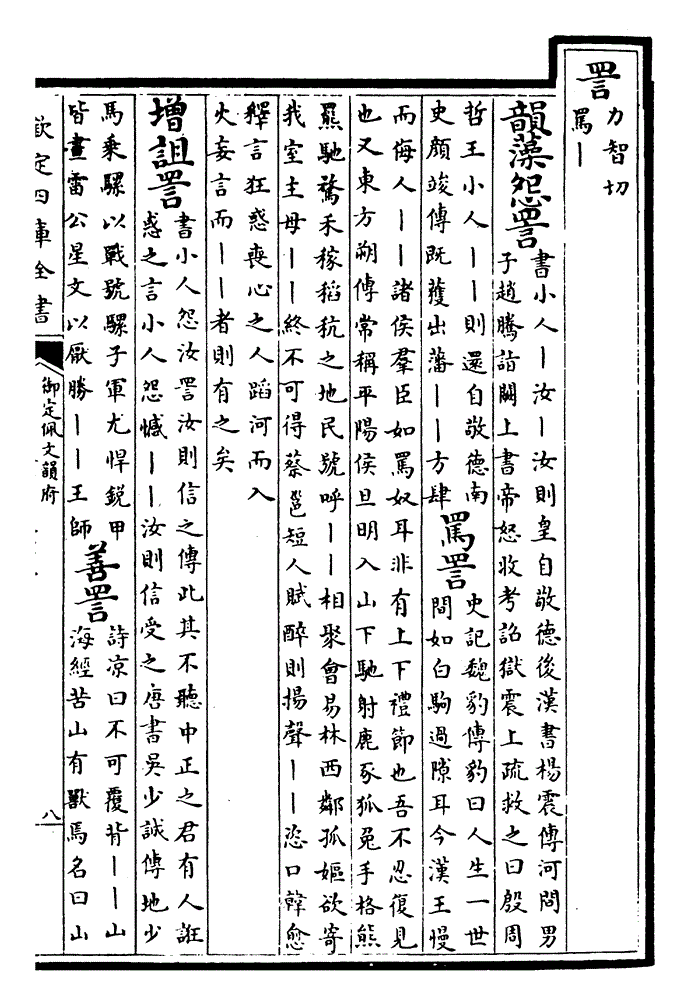 詈
力智切
罵丨
韻藻怨詈
書小人丨汝丨汝則皇自敬德後漢書楊震傳河間男
子趙騰詣闕上書帝怒收考詔獄震上疏救之曰殷周
哲王小人丨丨則還自敬德南
史顔竣傳既獲出藩丨丨方肆
罵詈
史記魏豹傳豹曰人生一世
間如白駒過隙耳今漢王慢
而侮人丨丨諸侯羣臣如罵奴耳非有上下禮節也吾不忍復見
也又東方朔傳常稱平陽侯旦明入山下馳射鹿豕狐兔手格熊
羆馳騖禾稼稻秔之地民號呼丨丨相聚會易林西鄰孤嫗欲寄
我室主母丨丨終不可得蔡邕短人賦醉則揚聲丨丨恣口韓愈
釋言狂惑喪心之人蹈河而入
火妄言而丨丨者則有之矣
增詛詈
書小人怨汝詈汝則信之傳此其不聽中正之君有人誑
惑之言小人怨憾丨丨汝則信受之唐書吳少誠傳地少
馬乗騾以戰號騾子軍尤悍銳甲
皆畫雷公星文以厭勝丨丨王師
善詈
詩凉曰不可覆背丨丨山
海經苦山有獸焉名曰山
欽定四庫全書
御定佩文韻府
八